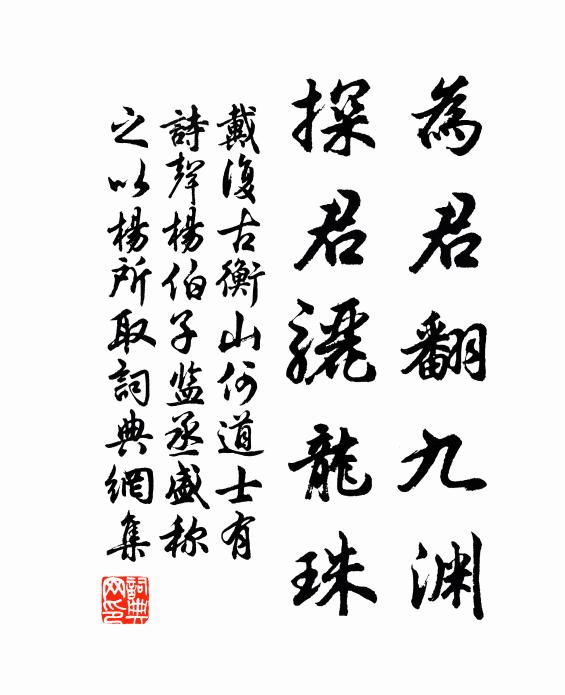 為君翻九渊
探君驪龍珠
戴復古衡山何道士有
詩聲楊伯子监丞盛称
之以楊所取詞典網集
詞典網印